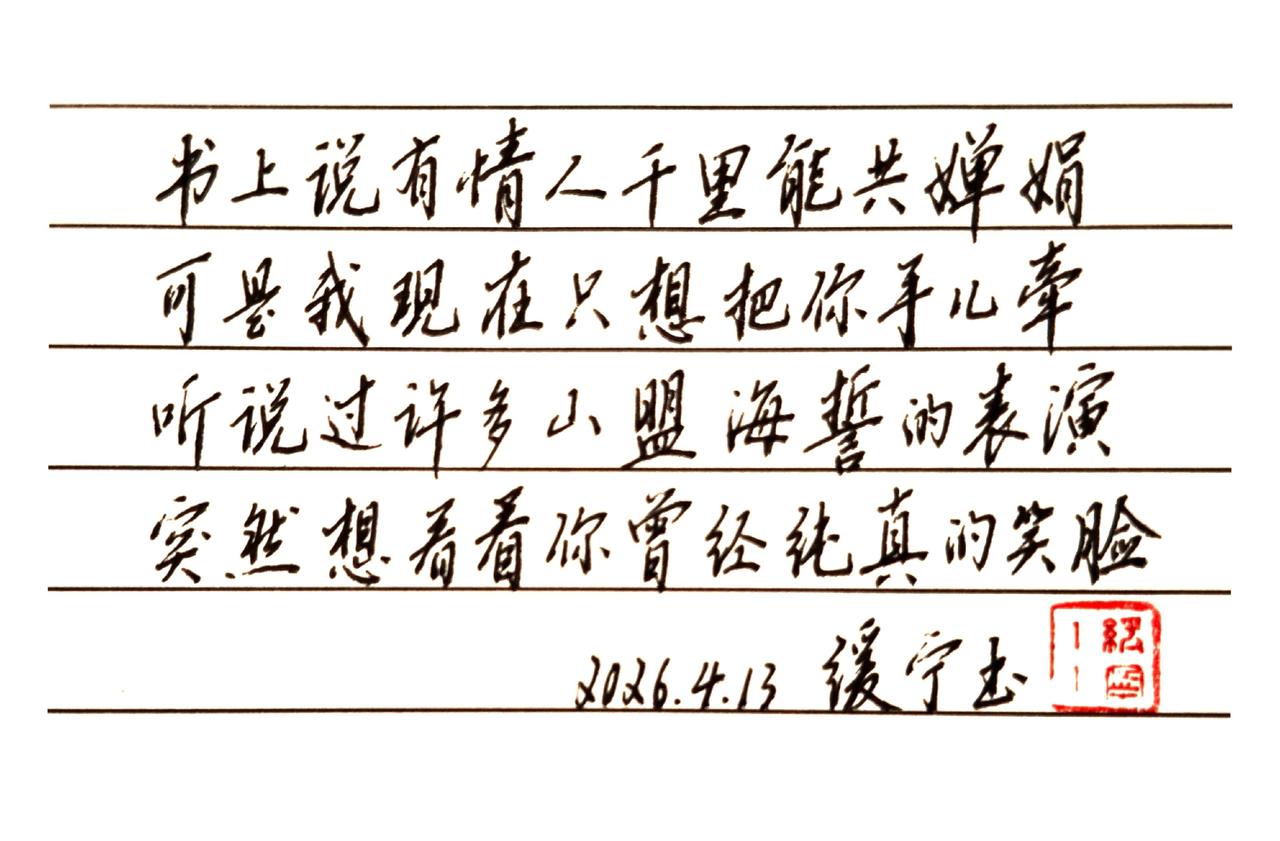 书上说有情人千里能共婵娟
可是我现在只想把你手儿牵
听说过许多山盟海誓的表演
突然想看看你曾经纯真的笑脸
2026.4.13 缓宁书